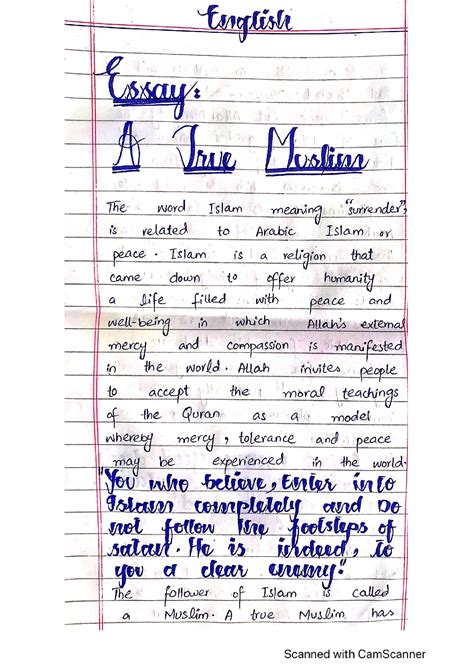 English
Essay:
A True Muslim
The word Islam meaning "surrender",
is related to Arabic Islam or
peace. Islam is a religion that
came down to offer humanity
a life filled with peace and
well-being in which Allah's external
mercy and compassion is manifested
in the world. Allah invites people
to accept the moral teachings
of the Quran as a model
whereby mercy, tolerance and peace
may be experienced in the world.
"You who believe, Enter into
Islam completely and Do
not follow the footsteps of
satan. He is indeed, to
you a clear enemy."
The follower of Islam is called
a Muslim. A true Muslim has
Scanned with CamScanner